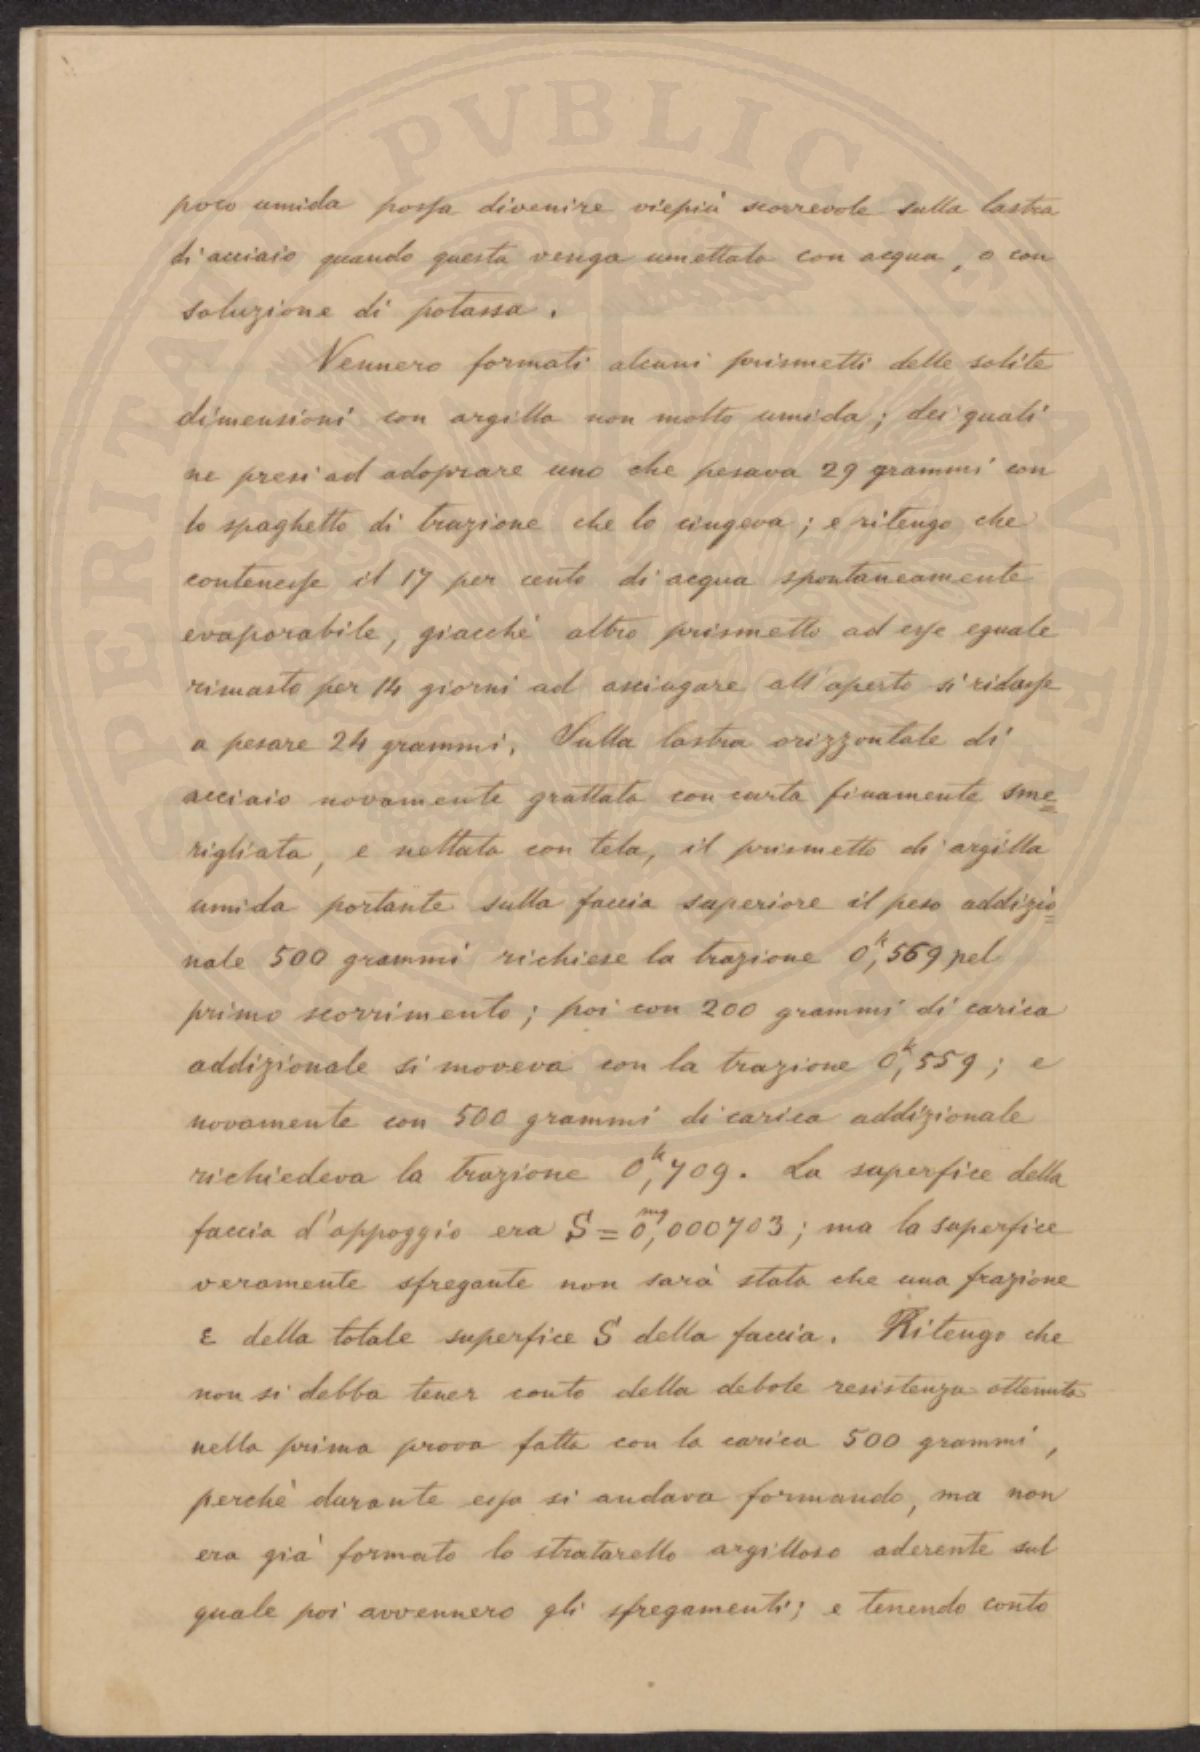 poco umida possa divenire viepiù scorrevole sulla lastra
di acciaio quando questa venga umettata con acqua, o con
soluzione di potassa.
Vennero formati alcuni prismetti delle solite
dimensioni con argilla non molto umida; dei quali
ne presi ad adoprare uno che pesava 29 grammi con
lo spaghetto di trazione che lo cingeva; e ritengo che
contenesse il 17 per cento di acqua spontaneamente
evaporabile, giacchè altro prismetto ad esso eguale
rimasto per 14 giorni ad asciugare all'aperto si ridusse
a pesare 24 grammi. Sulla lastra orizzontale di
acciaio novamente grattata con carta finamente sme=
rigliata, e nettata con tela, il prismetto di argilla
umida portante sulla faccia superiore il peso addizio=
nale 500 grammi richiese la trazione 0,ᵏ569 pel
primo scorrimento; poi con 200 grammi di carica
addizionale si moveva con la trazione 0,ᵏ559; e
novamente con 500 grammi di carica addizionale
richiedeva la trazione 0,ᵏ709. La superfice della
faccia d'appoggio era S = 0,ᵐq000703; ma la superfice
veramente sfregante non sarà stata che una frazione
ε della totale superfice S della faccia. Ritengo che
non si debba tener conto della debole resistenza ottenuta
nella prima prova fatta con la carica 500 grammi,
perchè durante essa si andava formando, ma non
era già formato lo stratarello argilloso aderente sul
quale poi avvennero gli sfregamenti; e tenendo conto